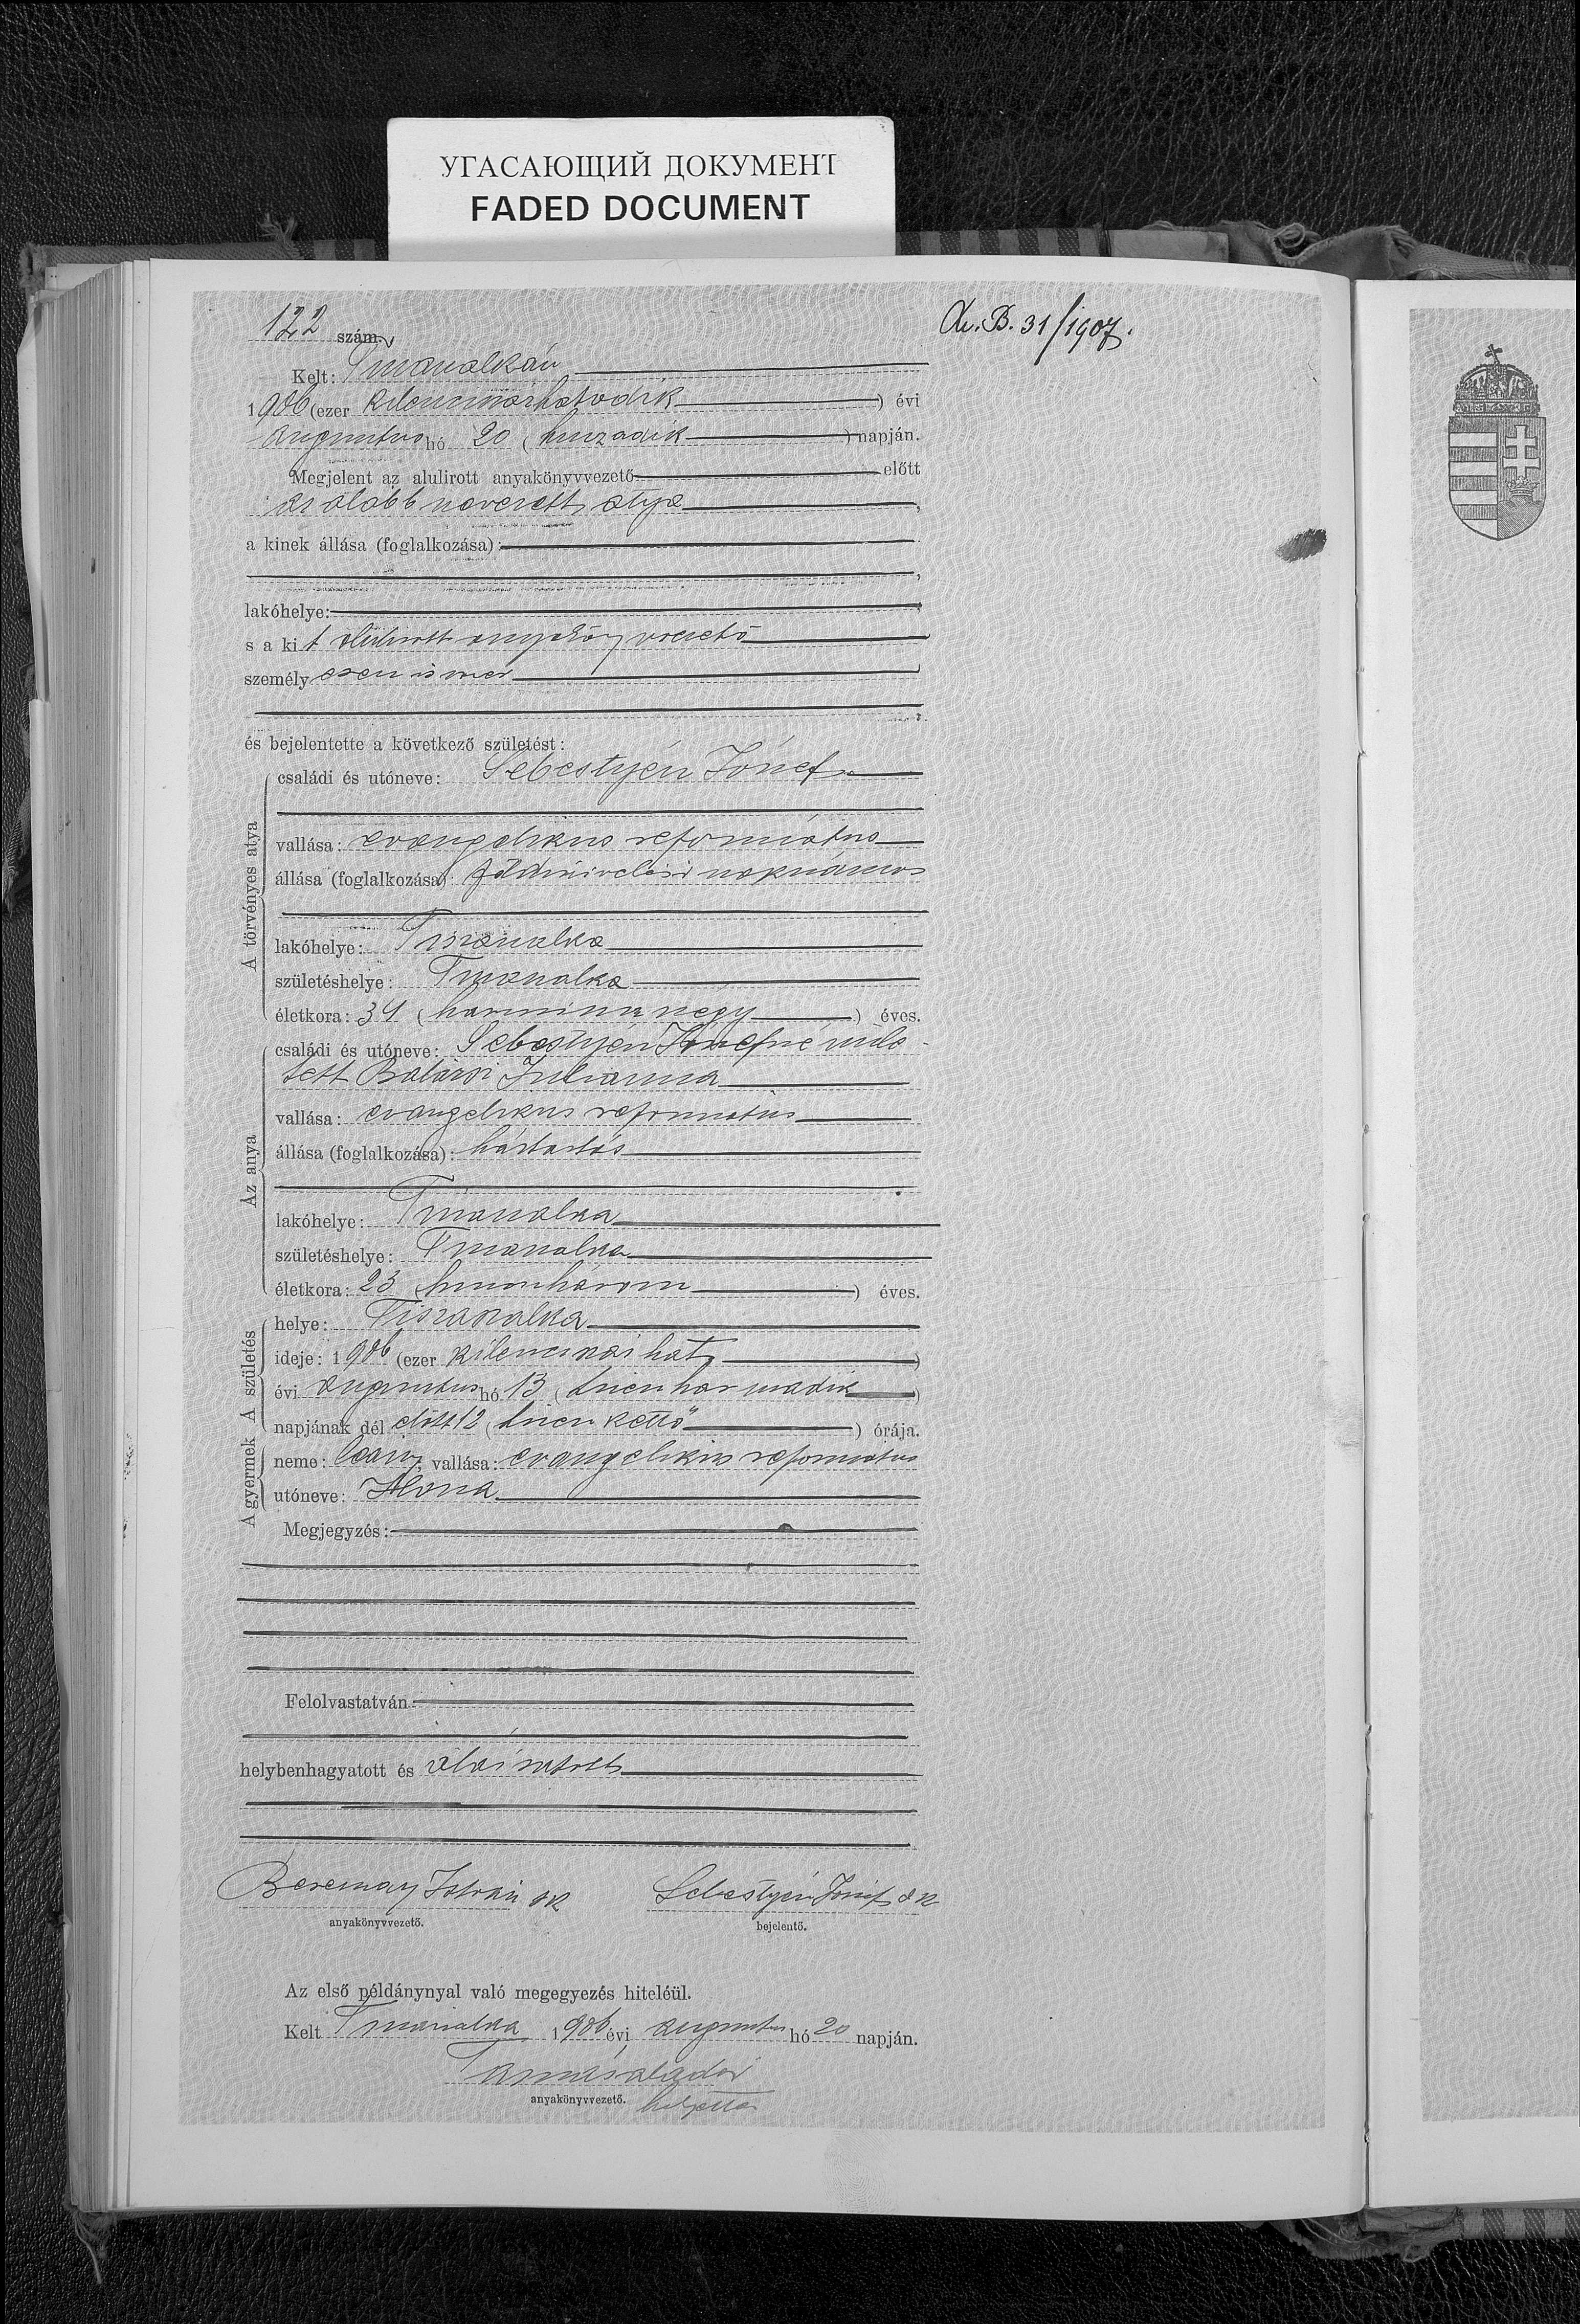 УГАСАЮЩИЙ ДОКУМЕНТ
FADED DOCUMENT
122 szám.
B. 31/1907.
Kelt: Tiszaszalkán
1906 (ezer kilencszázhatodik) évi
Augusztus hó 20 (huszadik) napján.
Megjelent az alulirott anyakönyvvezető előtt
az alább nevezett atya,
a kinek állása (foglalkozása):
lakóhelye:
s a kit alulirott anyakönyvvezető
személyesen ismer
és bejelentette a következő születést:
A törvényes atya
családi és utóneve: Sebestyén József
vallása: evangelikus református
állása (foglalkozása): földmivelési napszámos
lakóhelye: Tiszaszalka
születéshelye: Tiszaszalka
életkora: 34 (harmincznégy) éves.
Az anya
családi és utóneve: Sebestyén Józsefné szüle-
tett Balázsi Julianna
vallása: evangelikus református
állása (foglalkozása): háztartás
lakóhelye: Tiszaszalka
születéshelye: Tiszaszalka
életkora: 23 (huszonhárom) éves.
A születés
helye: Tiszaszalka
ideje: 1906 (ezer kilenczszázhat)
évi augusztus hó 13 (tizenharmadik)
napjának dél előtt 12 (tizenkettő) órája.
A gyermek
neme: leány, vallása: evangelikus református
utóneve: Ilona
Megjegyzés:
Felolvastatván
helybenhagyatott és aláiratott
István sk
anyakönyvvezető.
Sebestyén József sk
bejelentő.
Az első példánynyal való megegyezés hiteléül.
Kelt Tiszaszalka 1906 évi augusztus hó 20 napján.
anyakönyvvezető. helyettes